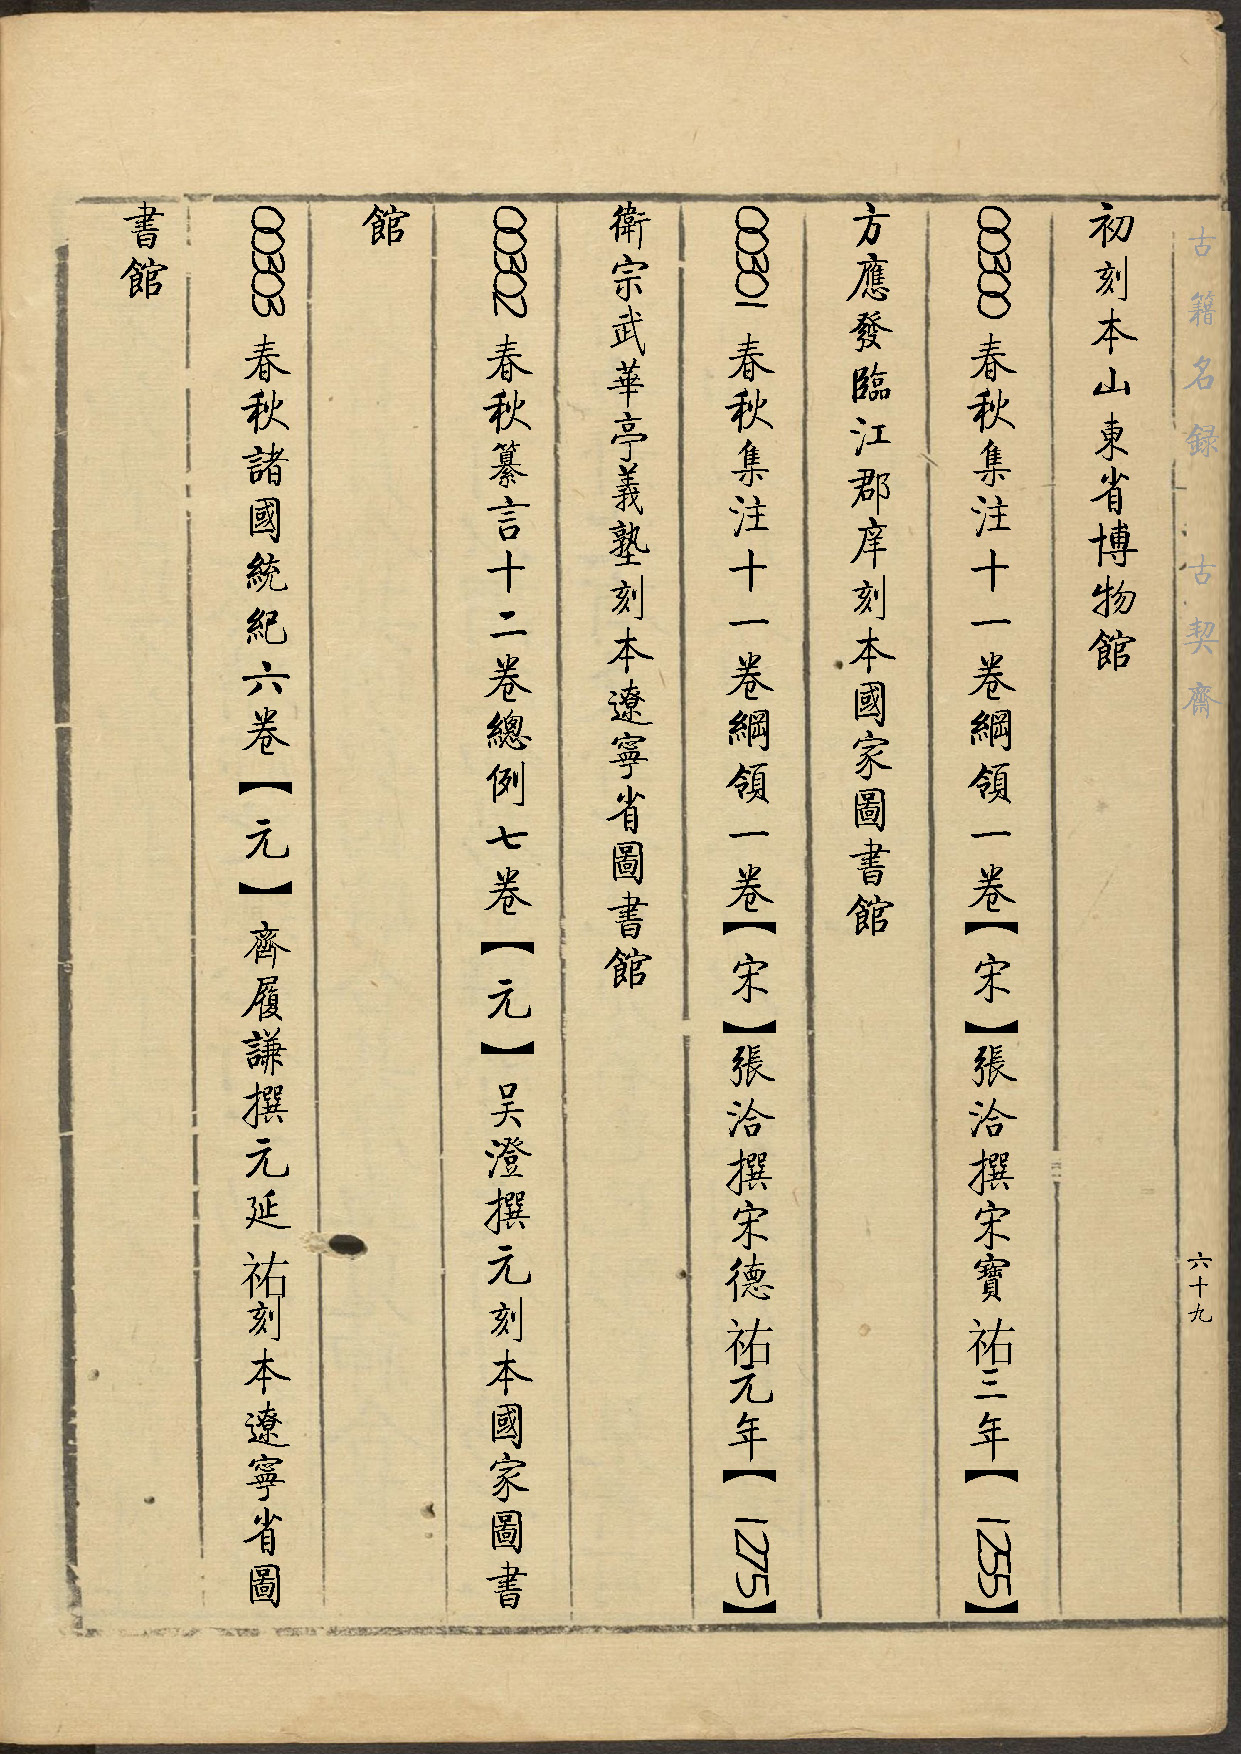 古籍名録 古契齋
六十九
初刻本山東省博物館
00300 春秋集注十一卷綱領一卷【宋】張洽撰宋寶祐三年【1255】
方應發臨江郡庠刻本國家圖書館
00301 春秋集注十一卷綱領一卷【宋】張洽撰宋德祐元年【1275】
衛宗武華亭義塾刻本遼寧省圖書館
00302 春秋纂言十二卷總例七卷【元】吴澄撰元刻本國家圖書
館
00303 春秋諸國統紀六卷【元】齊履謙撰元延祐刻本遼寧省圖
書館